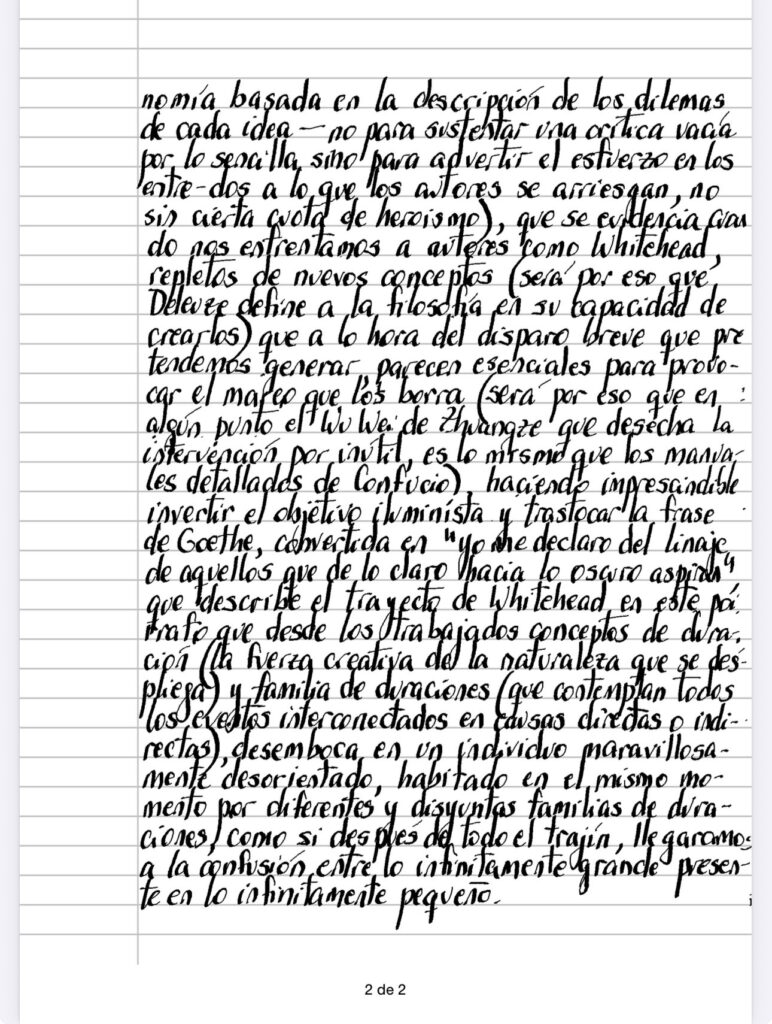 nomía basada en la descripción de los dilemas
de cada idea — no para sustentar una crítica vacía
por lo sencilla, sino para advertir el esfuerzo en los
entre-dos a lo que los autores se arriesgan, no
sin cierta cuota de heroísmo), que se evidencia cuan
do nos enfrentamos a autores como Whitehead,
repletos de nuevos conceptos (será por eso que
Deleuze define a la filosofía en su capacidad de
crearlos) que a lo hora del disparo breve que pre
tendemos generar, parecen esenciales para provo-
car el mareo que los borra (será por eso que en
algún punto el Wu Wei de Zhuangze que desecha la
intervención por inútil, es lo mismo que los manua-
les detallados de Confucio), haciendo imprescindible
invertir el objetivo iluminista y trastocar la frase
de Goethe, convertida en "yo me declaro del linaje
de aquellos que de lo claro hacia lo oscuro aspiran"
que describe el trayecto de Whitehead en este pá-
rrafo que desde los trabajados conceptos de dura-
ción (la fuerza creativa de la naturaleza que se des-
pliega) y familia de duraciones (que contemplan todos
los eventos interconectados en causas directas o indi-
rectas), desemboca en un individuo maravillosa-
mente desorientado, habitado en el mismo mo-
mento por diferentes y disyuntas familias de dura-
ciones, como si después de todo el trajín, llegáramos
a la confusión entre lo infinitamente grande presen-
te en lo infinitamente pequeño.
2 de 2